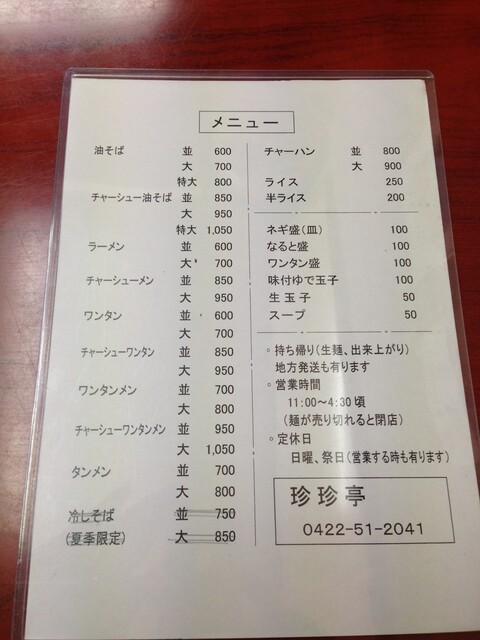 メニュー
油そば 並 600
大 700
特大 800
チャーシュー油そば 並 850
大 950
特大 1,050
ラーメン 並 600
大 700
チャーシューメン 並 850
大 950
ワンタン 並 600
大 700
チャーシューワンタン 並 850
大 950
ワンタンメン 並 700
大 800
チャーシューワンタンメン 並 950
大 1,050
タンメン 並 700
大 800
冷しそば 並 750
(夏季限定) 大 850
チャーハン 並 800
大 900
ライス 250
半ライス 200
ネギ盛(皿) 100
なると盛 100
ワンタン盛 100
味付ゆで玉子 100
生玉子 50
スープ 50
◦持ち帰り(生麺、出来上がり)
地方発送も有ります
◦営業時間
11:00〜4:30頃
(麺が売り切れると閉店)
◦定休日
日曜、祭日(営業する時も有ります)
珍珍亭
0422-51-2041